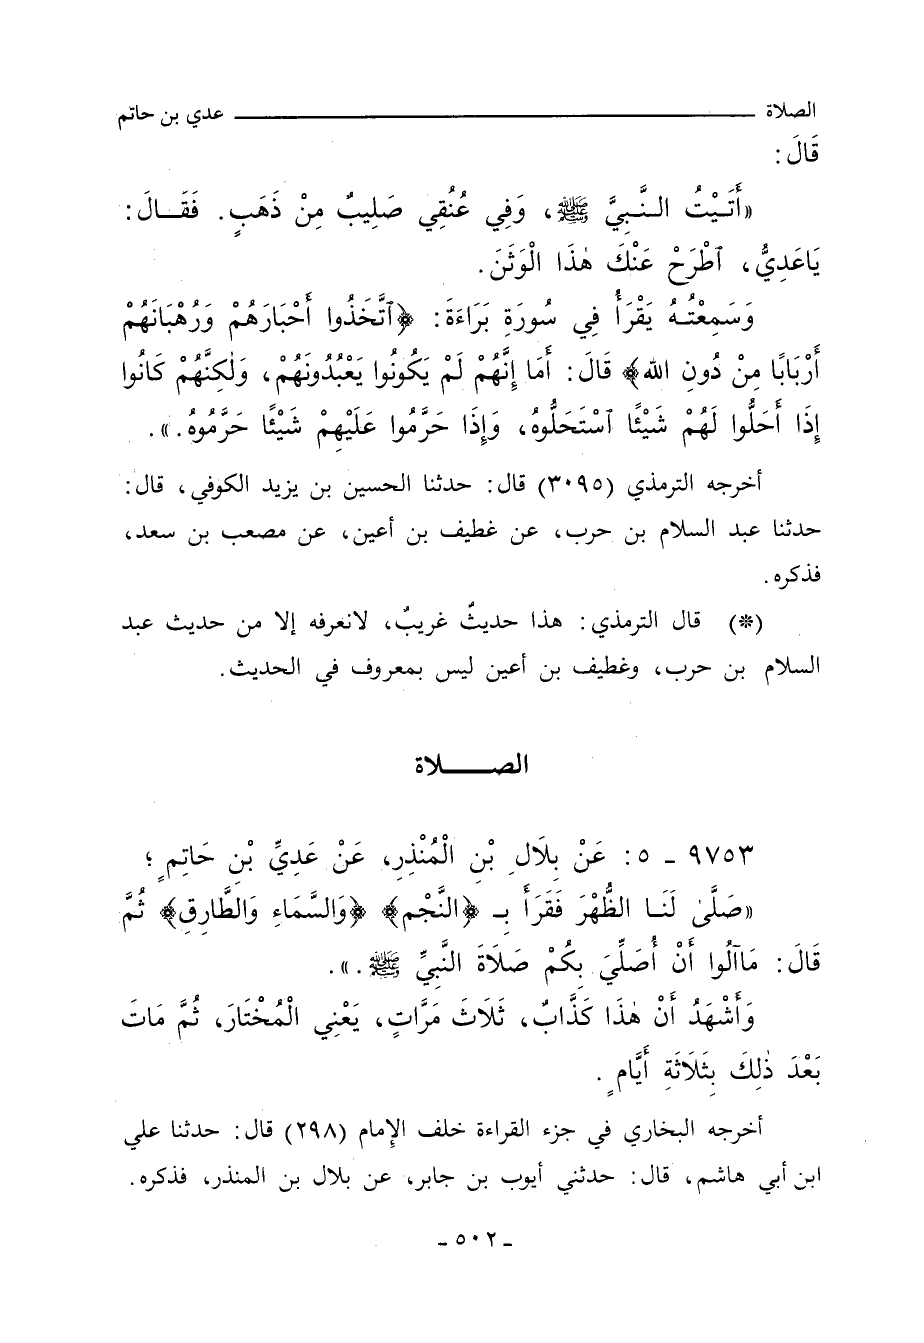 الصلاة ــــــــــــ عدي بن حاتم
قَالَ:
«أَتَيْتُ النَّبِيَّ ﷺ، وَفِي عُنُقِي صَلِيبٌ مِنْ ذَهَبٍ. فَقَالَ:
يَاعَدِيُّ، ٱطْرَحْ عَنْكَ هٰذَا الْوَثَنَ.
وَسَمِعْتُهُ يَقْرَأُ فِي سُورَةِ بَرَاءَةَ: ﴿ٱتَّخَذُوا أَحْبَارَهُمْ وَرُهْبَانَهُمْ
أَرْبَابًا مِنْ دُونِ اللهِ﴾ قَالَ: أَمَا إِنَّهُمْ لَمْ يَكُونُوا يَعْبُدُونَهُمْ، وَلٰكِنَّهُمْ كَانُوا
إِذَا أَحَلُّوا لَهُمْ شَيْئًا ٱسْتَحَلُّوهُ، وَإِذَا حَرَّمُوا عَلَيْهِمْ شَيْئًا حَرَّمُوهُ.».
أخرجه الترمذي (٣٠٩٥) قال: حدثنا الحسين بن يزيد الكوفي، قال:
حدثنا عبد السلام بن حرب، عن غطيف بن أعين، عن مصعب بن سعد،
فذكره.
(*) قال الترمذي: هذا حديثٌ غريبٌ، لانعرفه إلا من حديث عبد
السلام بن حرب، وغطيف بن أعين ليس بمعروف في الحديث.
الصـــــلاة
٩٧٥٣ ـ ٥: عَنْ بِلَالِ بْنِ الْمُنْذِرِ، عَنْ عَدِيِّ بْنِ حَاتِمٍ؛
«صَلَّىٰ لَنَا الظُّهْرَ فَقَرَأَ بِـ ﴿النَّجْمِ﴾ ﴿وَالسَّمَاءِ وَالطَّارِقِ﴾ ثُمَّ
قَالَ: مَاآلُوا أَنْ أُصَلِّيَ بِكُمْ صَلَاةَ النَّبِيِّ ﷺ.».
وَأَشْهَدُ أَنْ هٰذَا كَذَّابٌ، ثَلَاثَ مَرَّاتٍ، يَعْنِي الْمُخْتَارَ، ثُمَّ مَاتَ
بَعْدَ ذٰلِكَ بِثَلَاثَةِ أَيَّامٍ.
أخرجه البخاري في جزء القراءة خلف الإمام (٢٩٨) قال: حدثنا علي
ابن أبي هاشم، قال: حدثني أيوب بن جابر، عن بلال بن المنذر، فذكره.
ـ ٥٠٢ ـ